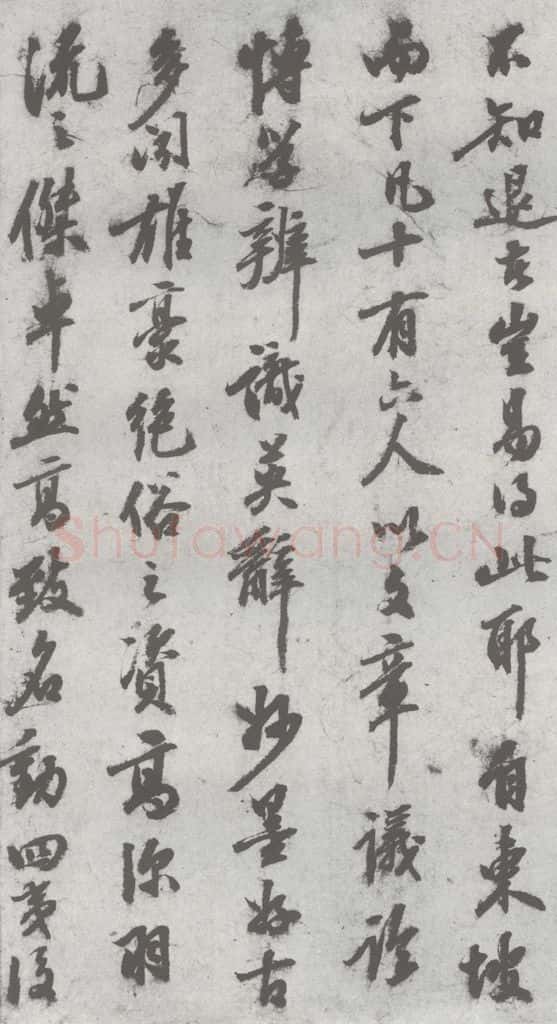 不知退去豈易得此耶有東坡
而下凡十有六人以文章議論
博學辨識英辭妙墨好古
多聞雄豪絕俗之資高深羽
流之傑卓然高致名動四夷後
Shufawang.CN